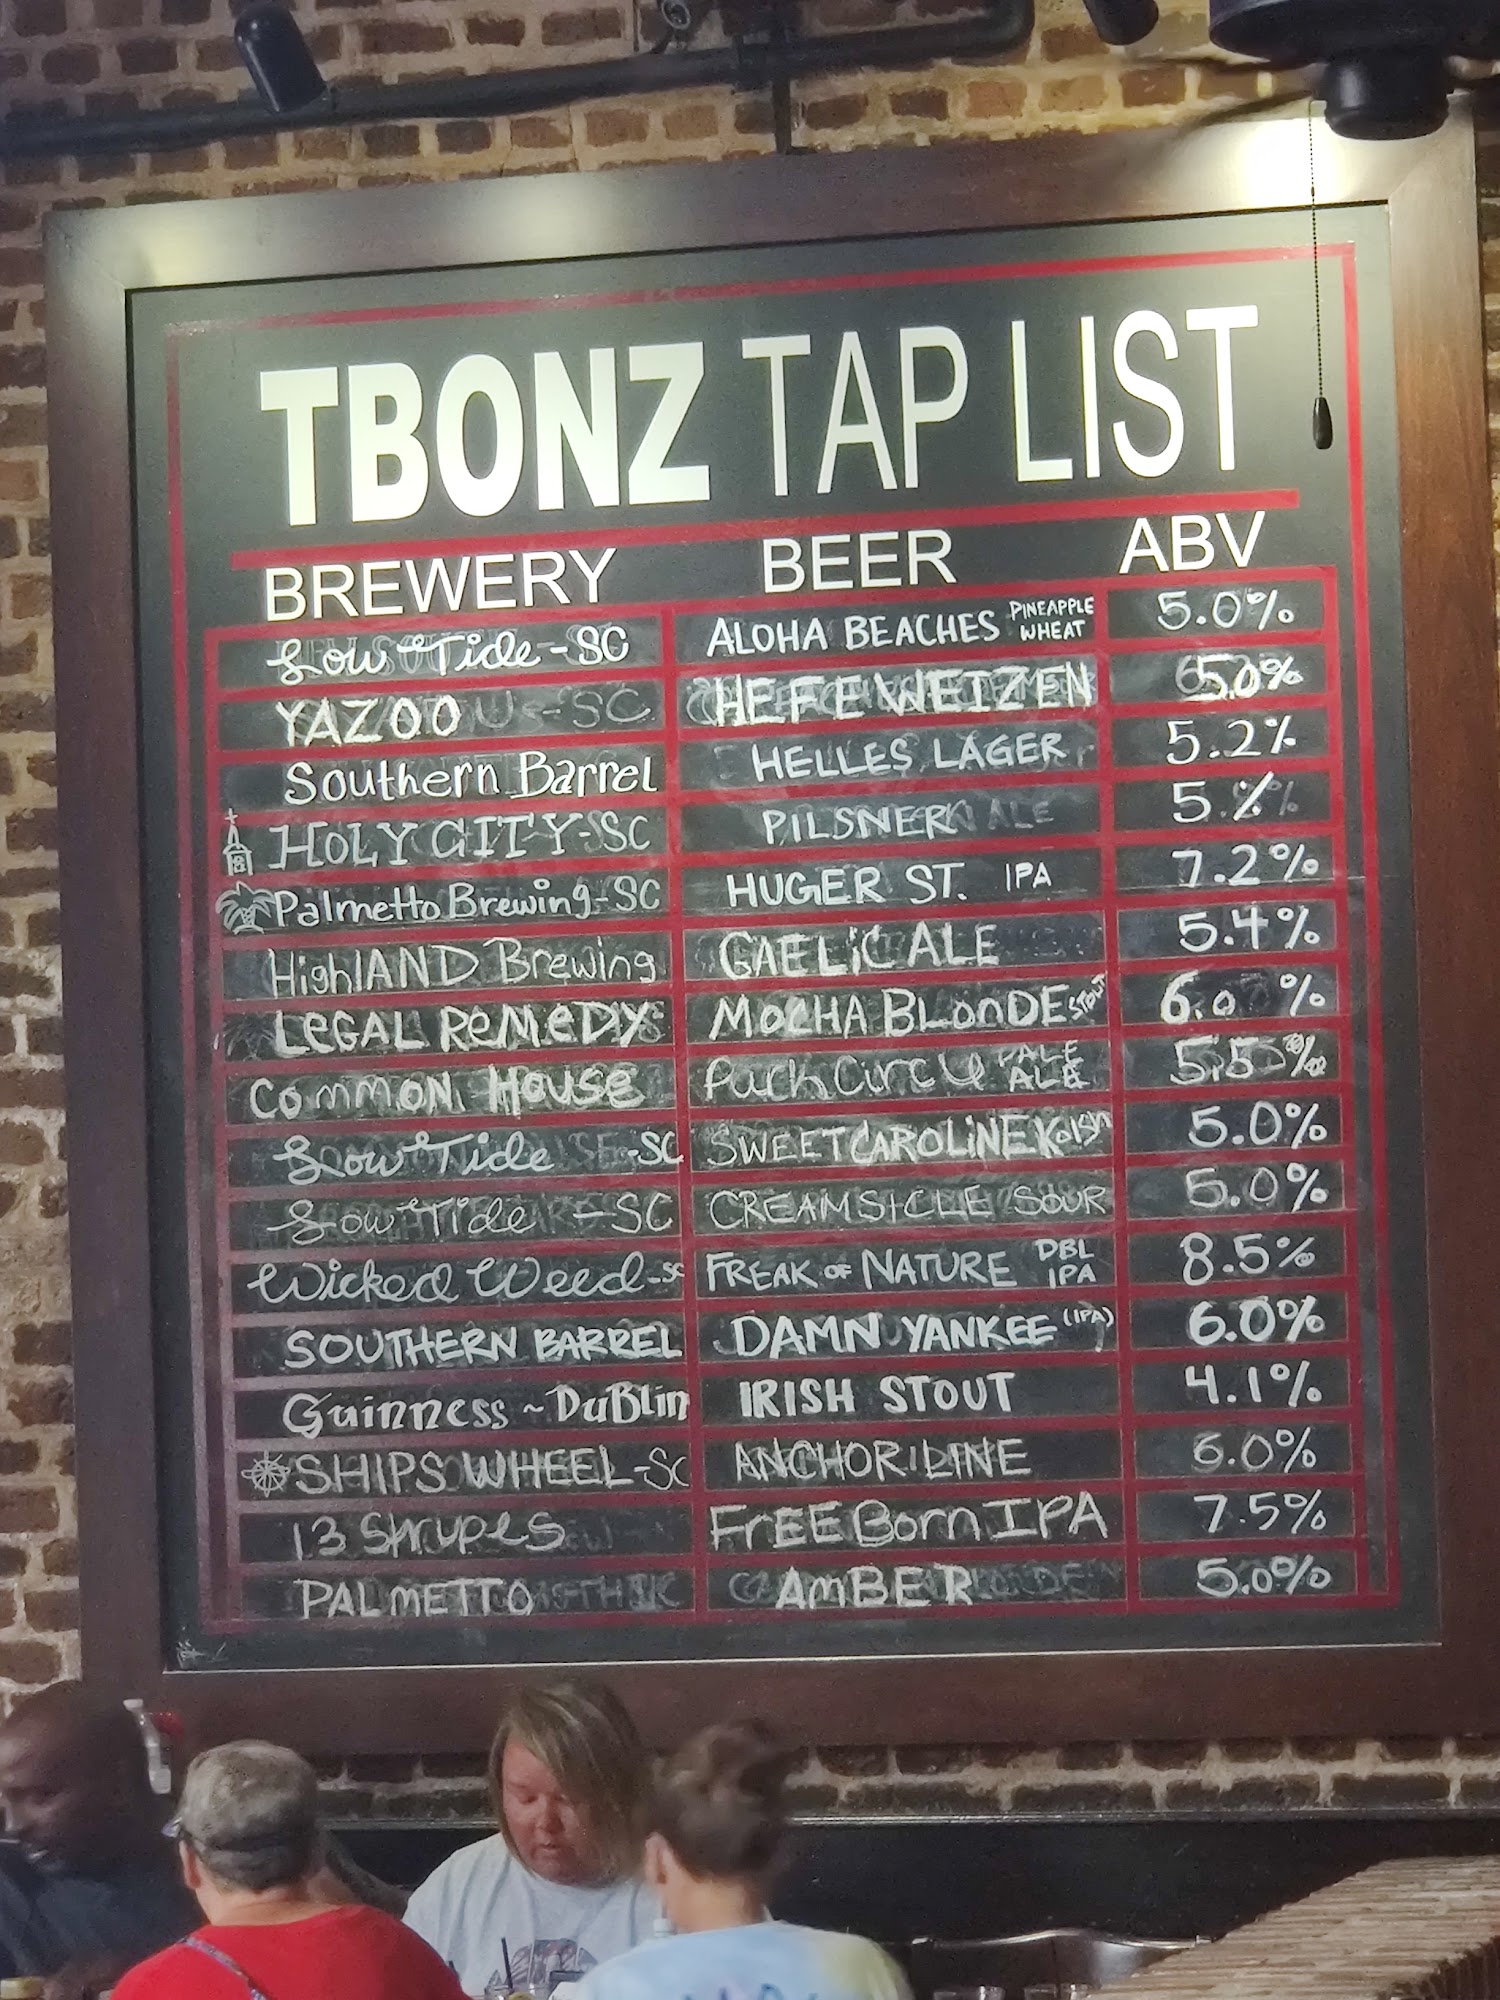 TBONZ TAP LIST
BREWERY BEER ABV
Low Tide-SC ALOHA BEACHES PINEAPPLE WHEAT 5.0%
YAZOO HEFEWEIZEN 5.0%
Southern Barrel HELLES LAGER 5.2%
HOLY CITY-SC PILSNER 5.%
Palmetto Brewing-SC HUGER ST. IPA 7.2%
HighlAND Brewing GAELiC ALE 5.4%
LEGAL ReMeDY MOCHA BLonDE STOUT 6.0 %
COmmON House PALE ALE 5.5%
Low Tide -SC SWEET CAROLINE Kolsh 5.0%
Low Tide -SC CREAMSICLE SOUR 5.0%
Wicked Weed-SC FREAK OF NATURE DBL IPA 8.5%
SOUTHERN BARREL DAMN YANKEE (IPA) 6.0%
Guinness ~ DuBlin IRISH STOUT 4.1%
SHIPS WHEEL-SC ANCHOR LINE 6.0%
13 Stripes FrEE Born IPA 7.5%
PALmETTO AmBER 5.0%